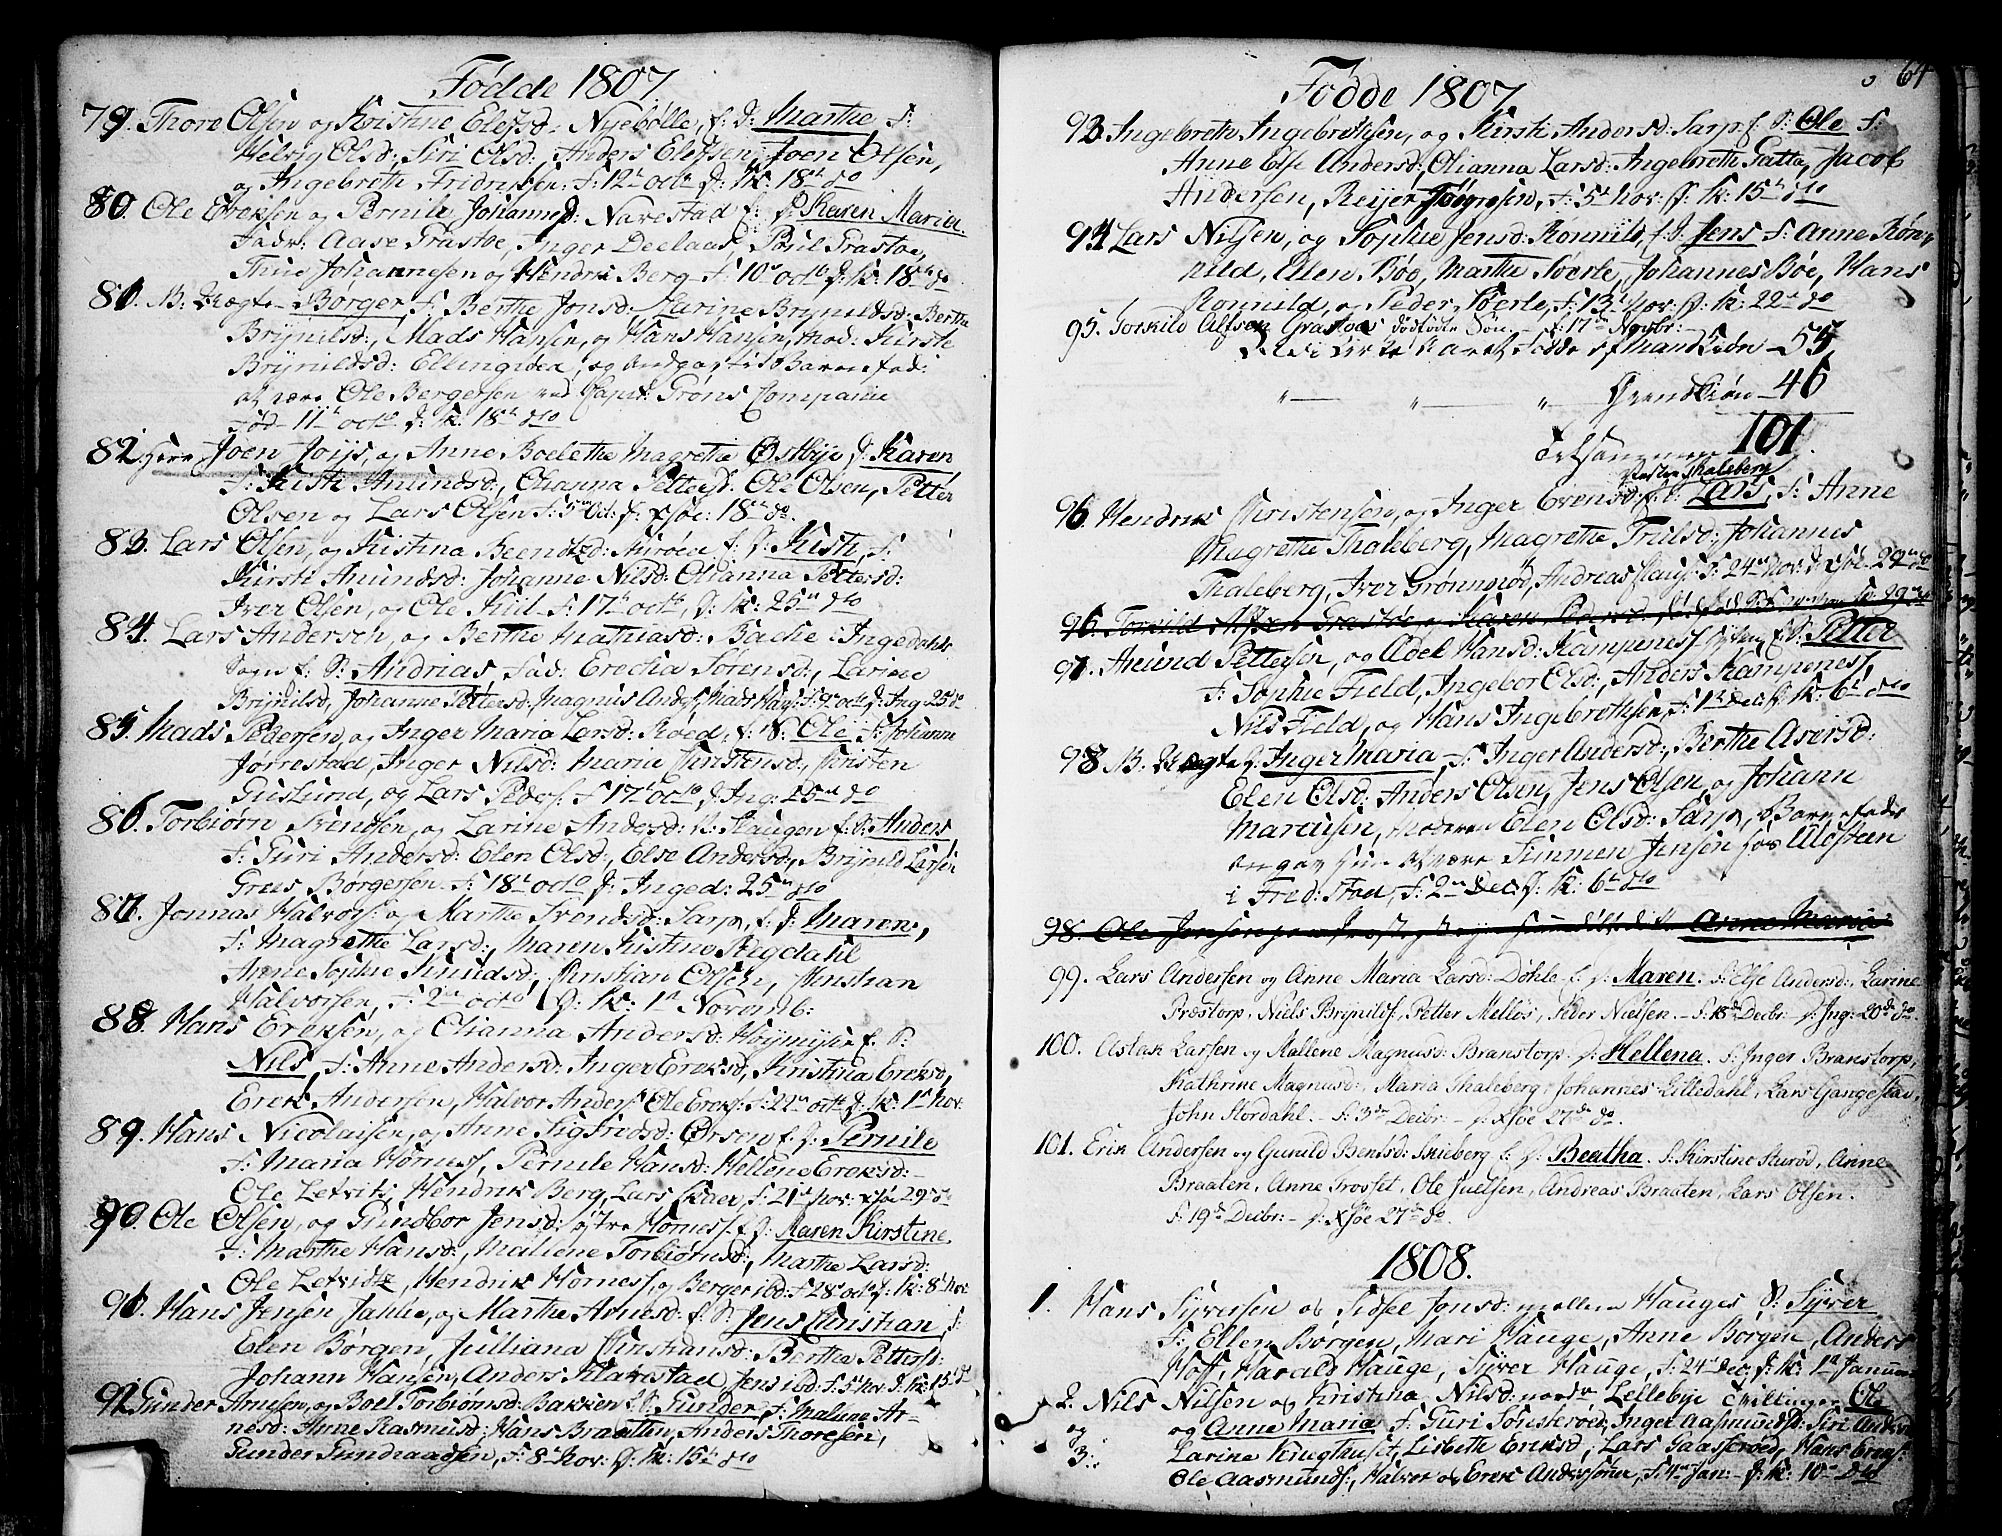 Födde 1807
79. Thore Olsen og Kristine Elefsd: Nyebølle, f: D: Marthe F:
Helvig Olsd:, Siri Olsd:, Anders Elefsen, Joen Olsen,
og Ingebreth Fridrichsen: F: 12te octb D: K: 18de do
80. Ole Ereksen og Pernile Johannesd: Navestad f: D: Karen Maria.
Fadr: Aase Grastøe, Inger Deelaas, Poul Grastøe,
Thue Johannesen og Hendrik Berg F: 10 octb D: K: 18de do
81. N. B. Uægte Børger F: Berthe Jonsd: Larine Brynildsd: Berthe
Brynilsd:, Mads Hansen, og Hans Hansen, Mod: Kirste
Brynildsd: Ellingiden, og andgav til Barnefad:
at være Ole Bergersen ved Capit: Grøns Compani
Fød 11te octb D: K: 18de do
82. Herr Joen Joys, og Anne Boelethe Magrethe Østbye D: Karen
F: Kirsti Amundsd:, Olianna Pettersd: Ole Olsen, Petter
Olsen og Lars Olsen F: 5te Oct: D: Xsøe: 18de do
83. Lars Olsen, og Kistina Beendtzd: Aurøen f: D: Kisti, F:
Kirsti Amundsd: Johanne Nilsd: Olianna Pettersd:
Iver Olsen, og Ole Kiil F: 17de octb D: K: 25de do
84. Lars Andersen, og Berthe Mathiasd: Bache i Ingedahls
Sogn f: S: Andrias, Fad: Erechia Sørensd:, Larine
Brynilsd, Johanne Pettersd: Magnus Anders: Mads Hans: F: octb D: Ing 25 do
85. Mads Pedersen, og Inger Maria Larsd: Roed, f: S: Ole F: Johanne
Jorrestad, Inger Nilsd: Maria Christensd:, Christen
Guslund, og Lars Peders: F: 17de octb D: Ing: 25de do
86. Torbiørn Svendsen, og Larine Andersd: N: Haugen f: S: Anders
F: Guri Andersd: Elen Olsd:, Else Andersd:, Brynild Larsen
Grees Børgersen. F: 18de octb D: Inged: 25de do
87. Jonnas Halvors: og Marthe Svendsd: Sarp, f: D: Maren,
F: Magrethe Larsd:, Maren Kistine Rugdahl
Anne Sophie Knudsd:, Christian Olsen, Christian
Halvorsen, F: 2de octb D: K: 1ste Novemb:
88. Hans Ereksen, og Olianna Andersd: Høymyhr f: S:
Nils, F: Anne Andersd: Inger Ereksd, Kristina Ereksd,
Erek Andersen, Halvor Anders: Ole Ereks: F: 22de octb D: K: 1ste Nov:
89. Hans Nicolaisen, og Anne Sigfridsd: Ørsen f: D: Pernile
F: Maria Hornes, Pernile Hansd: Hellene Ereksd:
Ole Letvits, Hendrik Berg, Lars Skaer, F: 21de Nov: Xsøe 29de do
90. Ole Olsen, og Gundbor Jensd: Ytre Hornes f: D: Maren Kirstine
F: Marthe Hansd:, Mallene Torbiørnsd:, Marthe Larsd:
Ole Letvidtz, Hendrik Hornes, og Berger ibd: F: 28de octb D: K: 8de Nov:
91. Hans Jensen Jahle, og Marthe Arnesd: f: S: Jens Christian, F:
Elen Børgen, Julliana Christiansd: Berthe Pettersd:
Johann Hansen, Anders Filkestad Jens ibd: F: 5te Nov D: K: 15de do
92. Gunder Arnesen, og Boel Torbiørnsd: Bakken f: S: Gunder F: Malene Ar-
nesd: Anne Rasmusd: Hans Braatten, Anders Thoresen,
Gunder Gundersen, F: 8de Nov: D: K: 15de do
64
Födde 1807
93. Ingebreth Ingebrethsen, og Kirsti Andersd: Sarp f. S: Ole F:
Anne Else Andersd: Olianna Larsd: Ingebreth Gatta, Jacob
Andersen, Reijer Jørgensen, F: 5te Nov: D: K: 15de do
94. Lars Nilsen, og Sophie Jensd: Rønnild, f: S: Jens F: Anne Røn-
nild, Ellen Bøe, Marthe Sverle, Johannes Bøe, Hans
Rønnild, og Peder Sverle, F: 13de Nov: D: K: 22de do
95. Torkild Alfsen Grastøes dødfødte Søn, f: 17de Novbr:
Kirke Aaret Fødde af Mandkiøn 55
" " " Qvendkiøn 46
Tilsammen 101.
96. Hendrik Christensen, og Inger Evensd: f. S: Lars, F: Anne
Pladsen Thaleberg
Magrethe Thaleberg, Magrethe Trulsd: Johannes
Thaleberg, Iver Grønnerød, Andreas Claus: F: 24de Nov: D: Xsøe 29de do
97. Amund Pettersen, og Adel Hansd: Kampenes f. S: Petter
F: Sophie Field, Ingebor Olsd:, Anders Kampenes,
Nils Field, og Hans Ingebrethsen, F: 1ste Dec: D: K: 6te do
98. N. B. Uægte D: Inger Maria, F: Inger Andersd:, Berthe Aversd:
Elen Olsd: Anders Olsen, Jens Olsen, og Johann
Marcusen, Moderen Elen Olsd: Sarp, Barnefader
angav hun at være Simmen Jensen hos Alosteen
i Fred:stad, F: 2den Dec: D: K: 6te do
98. Ole Jensen Anne Maria
99. Lars Andersen og Anne Maria Larsd: Døhle f. D: Maren. F: Else Andersd: Larine
Præstorp, Niels Brynilds:, Petter Melløs, Peder Nielsen. F: 18de Decbr: D: Ing: 20de do.
100. Aslak Larsen og Mallene Magnusd: Branstorp D: Hellena. F: Inger Branstorp,
Kathrine Magnusd:, Maria Thaleberg, Johannes Lilledahl, Lars Gangestad,
John Stordahl. F: 3de Decbr: D: Xsøe 27de do.
101. Erik Andersen og Gunild Bentsd: Skieberg f. D: Beatha. F: Kirstine Aurød, Anne
Braaten, Anne Trosset, Ole Juelsen, Andreas Braaten, Lars Olsen.
F: 19de Decbr: D: Xsøe 27de do.
1808.
1. Hans Syversen og Sidsel Jonsd: mellem Hauges S: Syver
F: Ellen Børgen, Mari Hauge, Anne Børgen, Anders
Hoff, Harald Hauge, Syver Hauge, F: 24de Dec: D: K: 1ste Januar
2. Nils Nilsen og Kristina Nilsd: nordr Lellebye Tvillinger Ole
og og Anne Maria F: Guri Sønsterøed, Inger Aasmundsd: Siri Andersd
3: Larine Knegthuset, Lisbeth Ereksd, Lars Gaasserød, Hans Ereks:
Ole Aasmunds:, Halvor og Erek Andersrøer, F: 4de Jan: D: K: 10de do